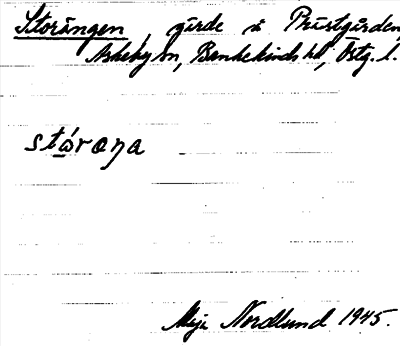 Storängen, gärde å Prästgården,
Askeby sn, Bankekinds hd, Östg. l.
stɷ́raŋa
Maja Nordlund 1945.